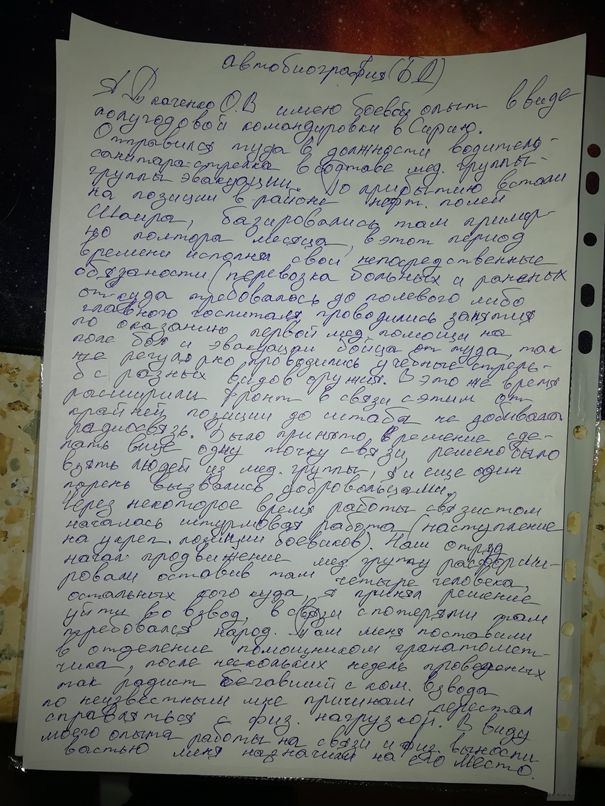 автобиография (Б Д)
Я Ткаченко О.В имею боевой опыт в виде
полугодовой командировки в Сирию.
Отправился туда в должности водитель-
санитара-стрелка в составе мед. группы-
группы эвакуации. По прибытию встали
на позиции в районе нефт. полей
Шаира, базировались там пример-
но полтора месяца, в этот период
времени исполнял свои непосредственные
обязаности (перевозка больных и раненых
откуда требовалось до полевого либо
главного госпиталя, проводились занятия
по оказанию первой мед. помощи на
поле боя и эвакуации бойца от туда, так
же регулярно проводились учебные стрель-
б с разных видов оружия. В это же время
расширили фронт в связи с этим от
крайней позиции до штаба не добивала
радиосвязь. Было принято решение сде-
лать еще одну точку связи, решено было
взять людей из мед. группы, я и еще один
парень вызвались добровольцами.
Через некоторое время работы связистом
началась штурмовая работа (наступление
на укреп. позиции боевиков). Наш отряд
начал продвижение мед группу расформи-
ровали оставив там четыре человека,
остальных кого куда, я принял решение
уйти во взвод, в связи с потерями там
требовался народ. Там меня поставили
в отделение помощником гранатомет-
чика, после нескольких недель проведеных
так радист бегавший с ком. взвода
по неизвестным мне причинам перестал
справляться с физ. нагрузкой. В виду
моего опыта работы на связи и физ. выносли
востью меня назначили на его место.